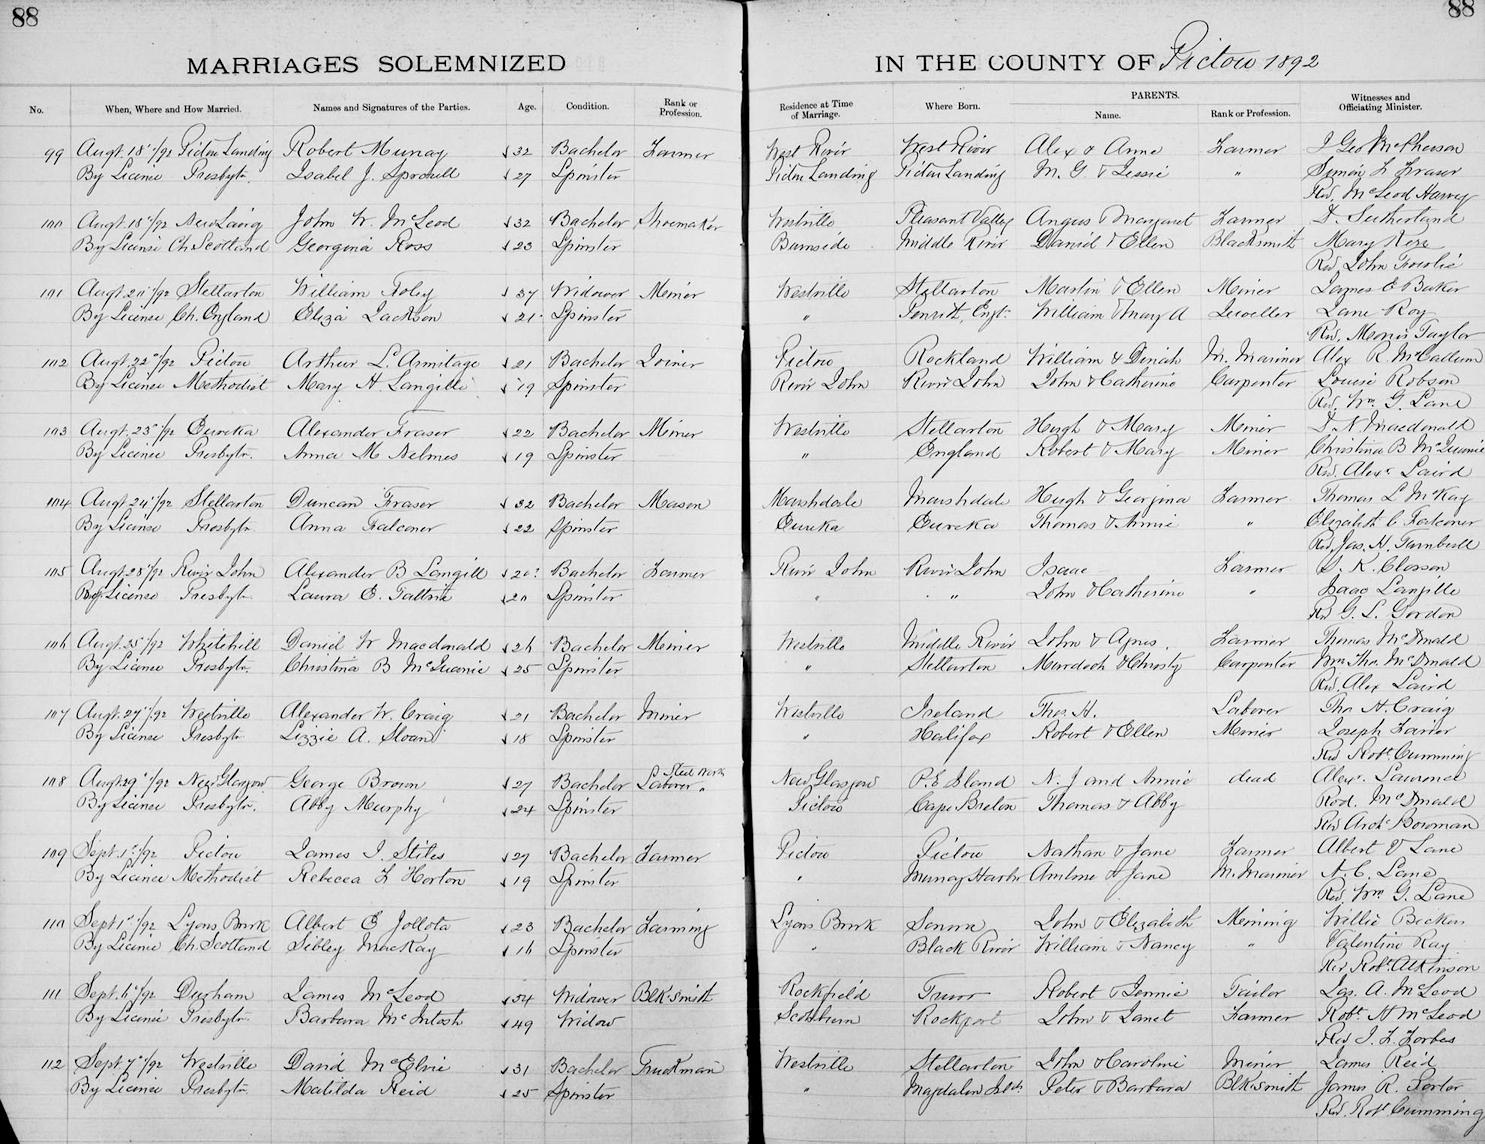 88
88
MARRIAGES SOLEMNIZED
IN THE COUNTY OF Pictou 1892
No. When, Where and How Married. Names and Signatures of the Parties. Age. Condition. Rank or Profession. Residence at Time of Marriage. Where Born. PARENTS. Name. Rank or Profession. Witnesses and Officiating Minister.
99 Augt. 18"/92 Pictou Landing Robert Murray 32 Bachelor Farmer West River West River Alex & Anne Farmer J Geo McPherson
By License Presbytn. Isabel J. Sproull 27 Spinster Pictou Landing Pictou Landing M. G & Jessie " Simon F Fraser
Rev. McLeod Harvey
100 Augt. 18"/92 New Lairg John W. McLeod 32 Bachelor Shoemaker Westville Pleasant Valley Angus & Margaret Farmer D Sutherland
By License Ch Scotland Georgina Ross 23 Spinster Burnside Middle River Daniel & Ellen Blacksmith Mary Rose
Rev John Fowlie
101 Augt. 20"/92 Stellarton William Foley 37 Widower Miner Westville Stellarton Martin & Ellen Miner James E Baker
By License Ch. England Eliza Jackson 21 Spinster " Engt. William & Mary A Jeweller Jane Roy
Rev. Morris Taylor
102 Augt. 22"/92 Pictou Arthur L. Armitage 21 Bachelor Joiner Pictou Rockland William & Dinah M. Mariner Alex R. McCallum
By License Methodist Mary A Langille 19 Spinster River John River John John & Catherine Carpenter Louise Robson
Rev. Wm. G. Lane
103 Augt. 23"/92 Eureka Alexander Fraser 22 Bachelor Miner Westville Stellarton Hugh & Mary Miner D N Macdonald
By License Presbytn. Anna M Nelmes 19 Spinster " England Robert & Mary Miner Christina B McQuanie
Rev. Alexr Laird
104 Augt. 24"/92 Stellarton Duncan Fraser 32 Bachelor Mason Marshdale Marshdale Hugh & Georgina Farmer Thomas L McKay
By License Presbytn. Anna Falconer 22 Spinster Eureka Eureka Thomas & Annie " Elizabeth C Falconer
Rev. Jas. H. Turnbull
105 Augt. 23"/92 River John Alexander B Langill 20 Bachelor Farmer River John River John Isaac Farmer D. K. Closson
By License Presbytn. Laura E. Tattrie 20 Spinster " " John & Catherine " Isaac Langille
Rev G. L. Gordon
106 Augt. 25"/92 Whitehill Daniel W Macdonald 26 Bachelor Miner Westville Middle River John & Agnes Farmer Thomas McDonald
By License Presbytn. Christina B McQuanie 25 Spinster " Stellarton Murdoch & Christy Carpenter Wm Tho. McDonald
Rev. Alex Laird
107 Augt. 27"/92 Westville Alexander W. Craig 21 Bachelor Miner Westville Ireland Thos. H. Laborer Tho H Craig
By License Presbytn. Lizzie A. Sloan 18 Spinster " Halifax Robert & Ellen Miner Joseph Farrier
Rev Robt. Cumming
108 Augt. 29"/92 New Glasgow George Brown 27 Bachelor Laborer Steel Works New Glasgow P.E Island N. J and Annie dead Alexr. Lawrence
By License Presbytn. Abby Murphy 24 Spinster Pictou Cape Breton Thomas & Abby Rod. McDonald
Rev Archd Bowman
109 Sept. 1st/92 Pictou James I. Stiles 27 Bachelor Farmer Pictou Pictou Nathan & Jane Farmer Albert V Lane
By License Methodist Rebecca F Horton 19 Spinster " Murray Harbr Antone & Jane M. Mariner A. C. Lane
Rev. Wm. G. Lane
110 Sept 1st/92 Lyons Brook Albert E Jollota 23 Bachelor Farming Lyons Brook Sonora John & Elizabeth Mining Willie
By License Ch. Scotland Sibley MacKay 16 Spinster " Black River William & Nancy " Valentine Ray
Rev Robt. Atkinson
111 Sept. 6"/92 Durham James McLeod 54 Widower Blksmith Rockfield Truro Robert & Jennie Tailor Jas. A. McLeod
By License Presbytn. Barbara McIntosh 49 Widow Scotsburn Rockport John & Janet Farmer Robt. H McLeod
Rev J. F. Forbes
112 Sept 7"/92 Westville David McElvie 31 Bachelor Truckman Westville Stellarton John & Caroline Miner James Reid
By License Presbytn. Matilda Reid 25 Spinster " Magdalen Isds. Peter & Barbara Blksmith James R. Porter
Rev. Robt. Cumming